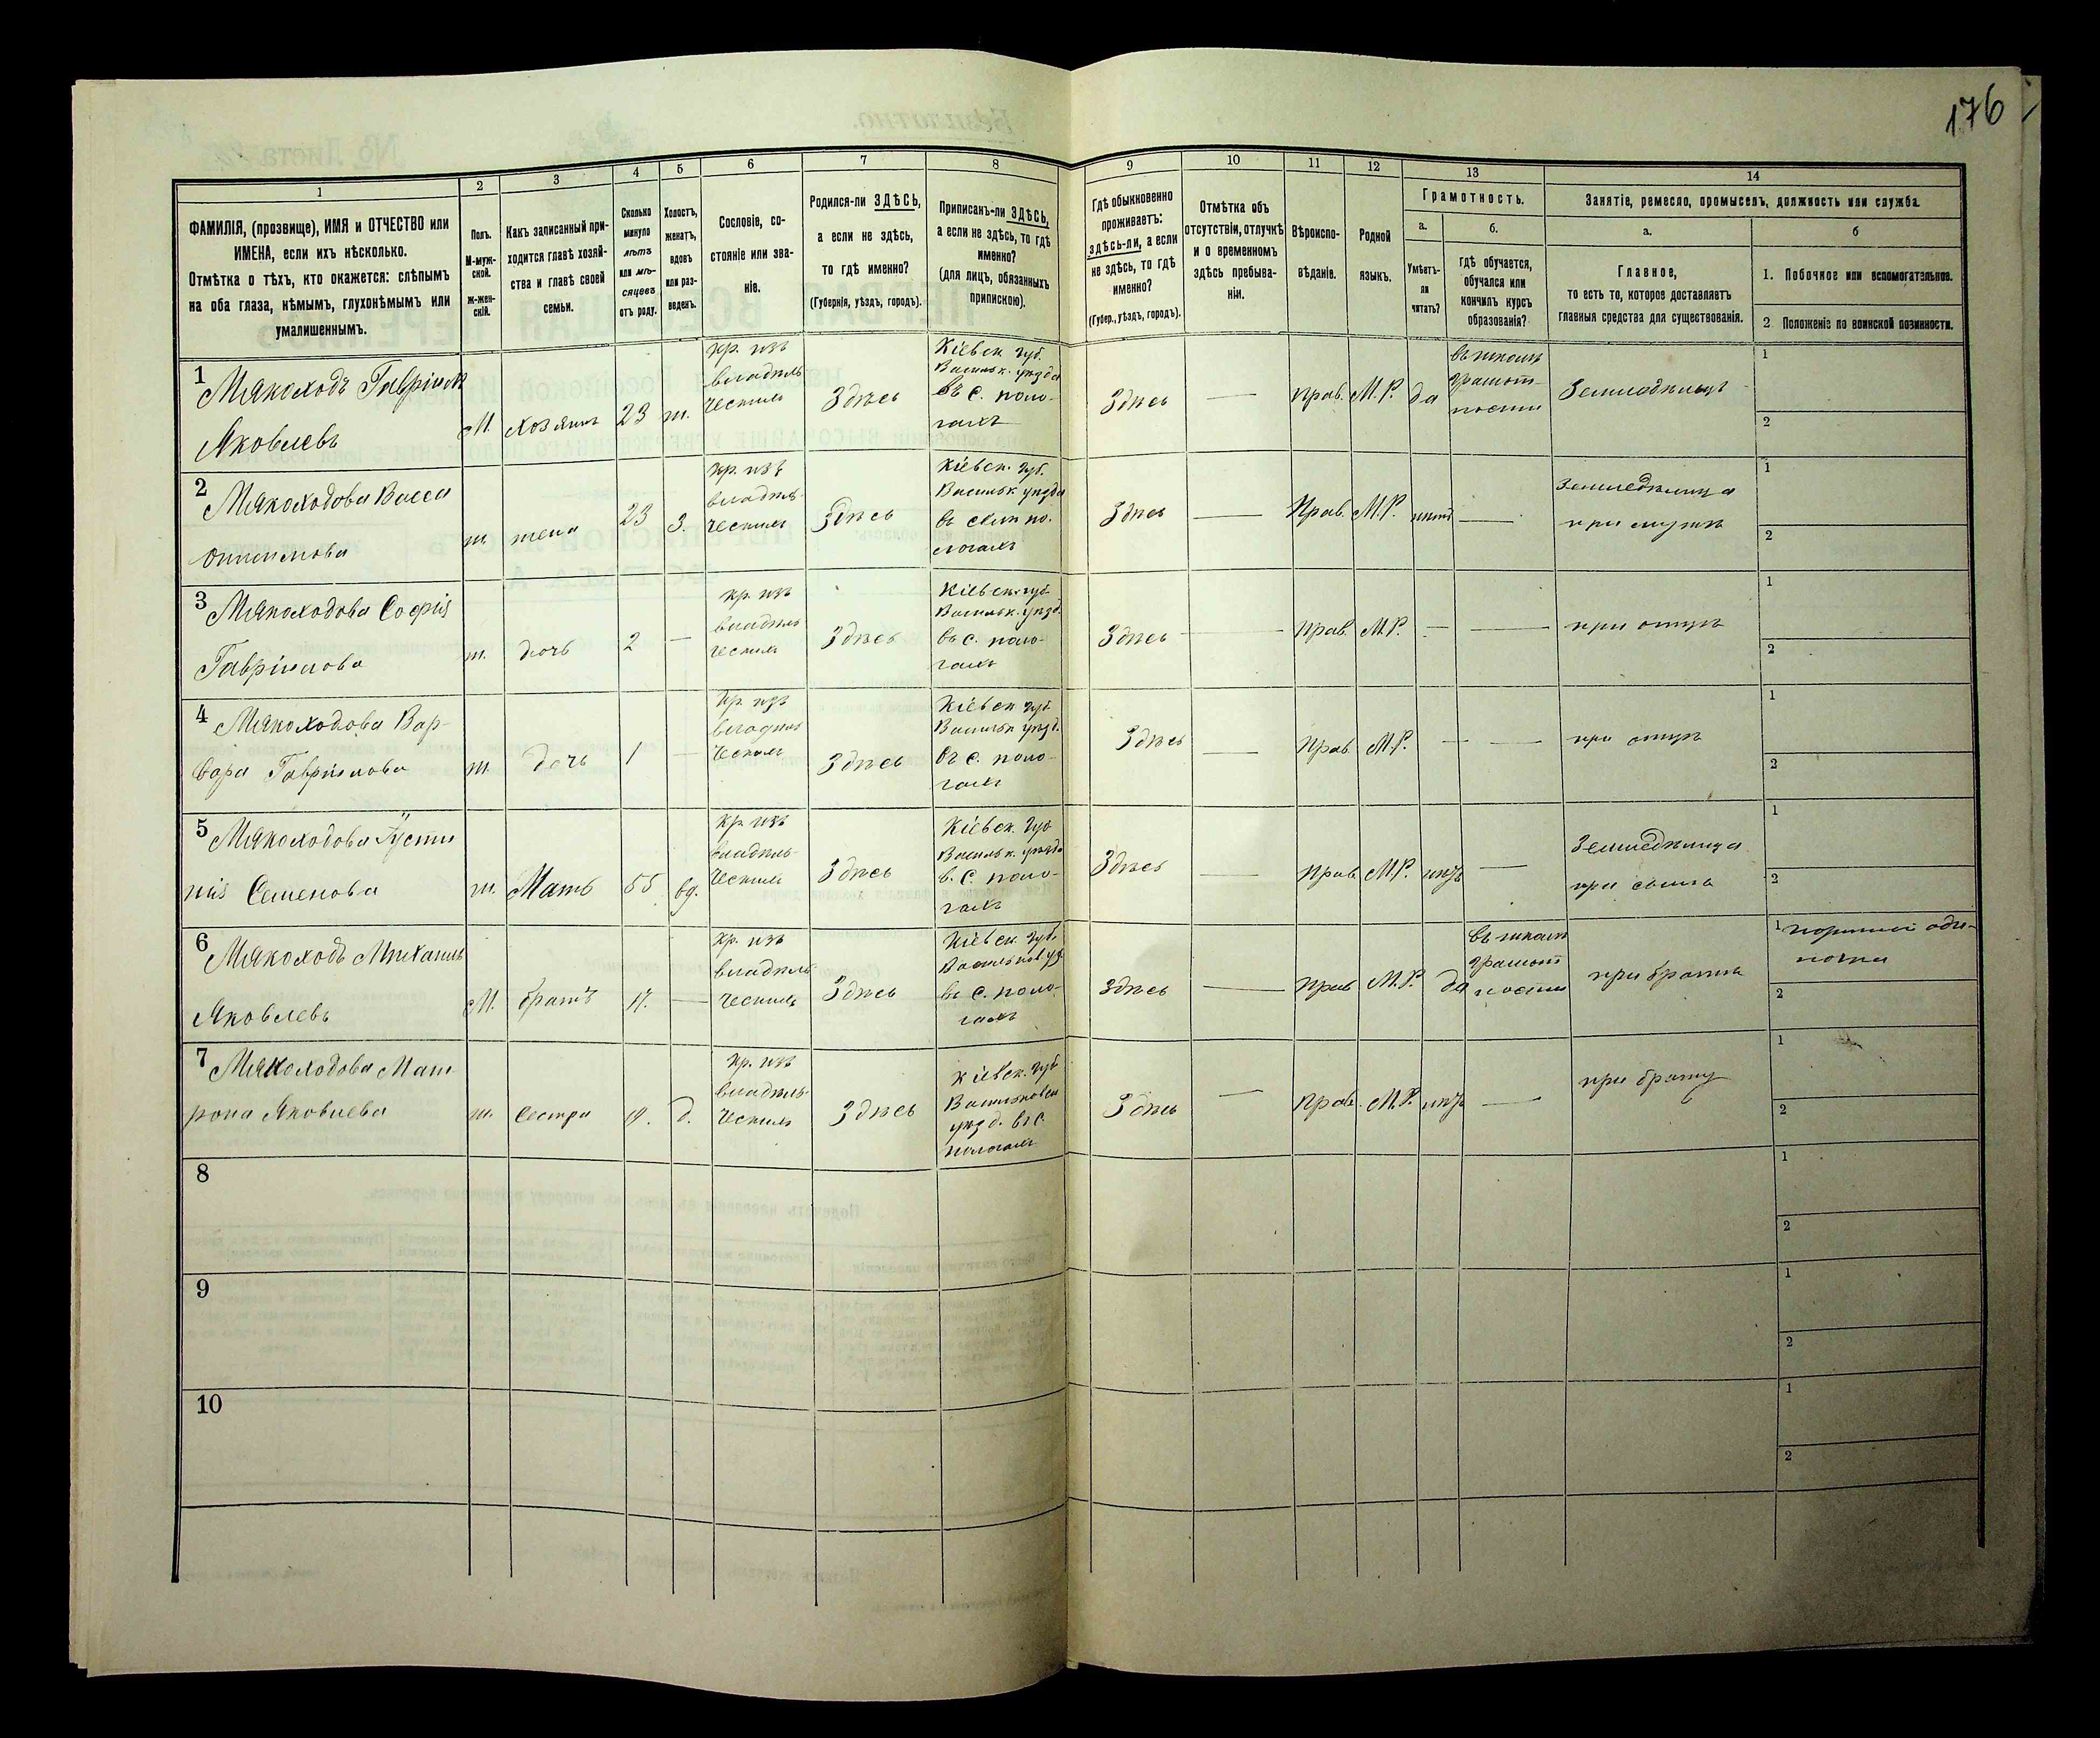 176
1
2
3
4
5
6
7
8
9
10
11
12
13
14
ФАМИЛІЯ, (прозвище), ИМЯ и ОТЧЕСТВО или
ИМЕНА, если ихъ нѣсколько.
Отмѣтка о тѣхъ, кто окажется: слѣпымъ
на оба глаза, нѣмымъ, глухонѣмымъ или
умалишеннымъ.
Полъ.
М-муж-
ской.
Ж-жен-
скій.
Какъ записанный при-
ходится главѣ хозяй-
ства и главѣ своей
семьи.
Сколько
минуло
лѣтъ
или мѣ-
сяцевъ
отъ роду.
Холостъ,
женатъ,
вдовъ
или раз-
веденъ.
Сословіе, со-
стояніе или зва-
ніе.
Родился-ли ЗДѢСЬ,
а если не здѣсь,
то гдѣ именно?
(Губернія, уѣздъ, городъ).
Приписанъ-ли ЗДѢСЬ,
а если не здѣсь, то гдѣ
именно?
(для лицъ, обязанныхъ
припискою).
Гдѣ обыкновенно
проживаетъ:
здѣсь-ли, а если
не здѣсь, то гдѣ
именно?
(Губер., уѣздъ, городъ).
Отмѣтка объ
отсутствіи, отлучкѣ
и о временномъ
здѣсь пребыва-
ніи.
Вѣроиспо-
вѣданіе.
Родной
языкъ.
Грамотность.
а.
Умѣетъ-
ли
читать?
б.
гдѣ обучается,
обучался или
кончилъ курсъ
образованія?
Занятіе, ремесло, промыселъ, должность или служба.
а.
Главное,
то есть то, которое доставляетъ
главныя средства для существованія.
б
1. Побочное или вспомогательное.
2 Положеніе по воинской повинности.
1 Мякоходъ Гавріилъ
Яковлевъ
М. хозяинъ 23 ж.
кр. изъ
владѣль
ческихъ
Здѣсь
Кіевск. губ.
Васильк. уѣзда
въ с. поло-
гахъ
Здѣсь — прав. М.Р. да
въ школѣ
грамот-
ности
Земледѣлецъ
1
2
2 Мякоходова Васса
Онисимова
ж. жена 23 з.
кр. изъ
владѣль-
ческихъ
Здѣсь
Кіевск. губ.
Васильк. уѣзда
въ селѣ по-
логахъ
Здѣсь — Прав. М.Р. нѣтъ —
Земледѣлица
при мужѣ
1
2
3 Мякоходова Софія
Гавріилова
ж. дочь 2 —
кр. изъ
владѣль
ческихъ
Здѣсь
Кіевск. губ.
Васильк. уѣзд.
въ с. поло-
гахъ
Здѣсь — прав. М.Р. — — при отцѣ
1
2
4 Мякоходова Вар-
вара Гавріилова
ж. дочь 1 —
кр. изъ
владѣль
ческихъ
Здѣсь
Кіевск губ.
Васильк уѣзд.
въ с. поло-
гахъ
Здѣсь — прав М.Р. — — при отцѣ
1
2
5 Мякоходова Іусти
нія Семенова
ж. Мать 55 вд.
кр. изъ
владѣль-
ческихъ
Здѣсь
Кіевск. губ
Васильк. уѣзда
в. с. поло-
гахъ
Здѣсь — прав М.Р. нѣтъ —
Земледѣлица
при сынѣ
1
2
6 Мякоходъ Михаилъ
Яковлевъ
М. братъ 17. —
кр. изъ
владѣль
ческихъ
Здѣсь
Кіевск. губ.
Васильков уѣ
въ с. поло-
гахъ
Здѣсь — прав М.Р. да
въ школѣ
грамот
ности
при братѣ
1
2
7 Мякоходова Мат
рона Яковлева
ж. Сестра д.
кр. изъ
владѣль-
ческихъ
Здѣсь
Кіевск. губ
Васильковск
уѣзд. въ с.
пологахъ
Здѣсь — прав. М.Р. нѣтъ — при брату
1
2
8
1
2
9
1
2
10
1
2